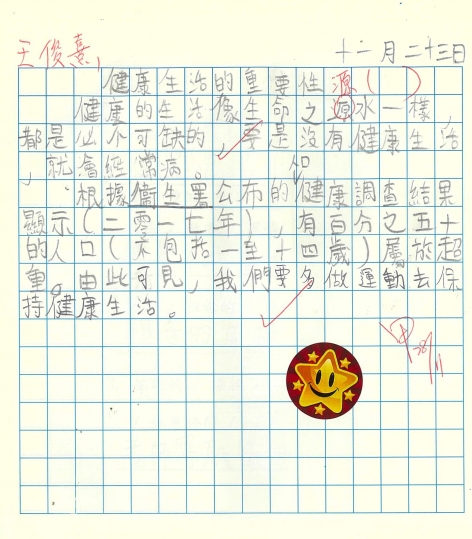 王俊熹，
十一月二十三日
健康生活的重要性 源（ ）
健康的生活像生命之源水一樣，
都是必不可缺的，要是沒有健康生活
，就會經常病。
和
根據衞生署公布的健康調查結果
顯示（二零一七年），有百分之五十
的人口（不包括一至十四歲）屬於超
重。由此可見，我們要多做運動去保
持健康生活。
甲
28/11